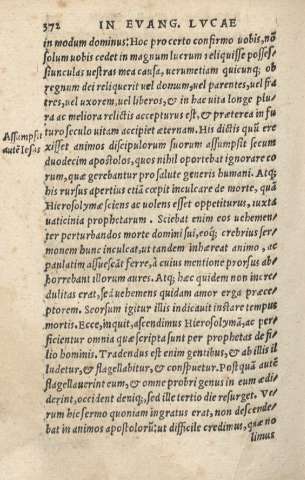 372 IN EVANG. LVCAE
in modum dominus: Hoc pro certo confirmo uobis, nõ
solum uobis cedet in magnum lucrum reliquisse posses-
siunculas uestras mea causa, uerumetiam quicunq; ob
regnum dei reliquerit uel domum, uel parentes, uel fra
tres, uel uxorem, uel liberos, & in hac uita longe plu
ra ac meliora relictis accepturus est, & præterea in fu
Assumpsit
turo seculo uitam accipiet æternam. His dictis quũ ere
autẽ Iesus
xisset animos discipulorum suorum assumpsit secum
duodecim apostolos, quos nihil oportebat ignorare eo
rum, quæ gerebantur pro salute generis humani. Atq;
his rursus apertius etiã cœpit inculcare de morte, quã
Hierosolymæ sciens ac uolens esset oppetiturus, iuxta
uaticinia prophetarum. Sciebat enim eos uehemen-
ter perturbandos morte domini sui, eoq; crebrius ser-
monem hunc inculcat, ut tandem inhæreat animo, ac
paulatim assuescãt ferre, à cuius mentione prorsus ab
horrebant illorum aures. Atq; hæc quidem non incre
dulitas erat, sed uehemens quidam amor erga præce-
ptorem. Seorsum igitur illis indicauit instare tempus
mortis. Ecce, inquit, ascendimus Hierosolymã, ac per
ficientur omnia quæ scripta sunt per prophetas de fi-
lio hominis. Tradendus est enim gentibus, & ab illis il
ludetur, & flagellabitur, & conspuetur. Postquã autẽ
flagellauerint eum, & omne probri genus in eum ædi-
derint, occident deniq;, sed ille tertio die resurget. Ve-
rum hic sermo quoniam ingratus erat, non descende-
bat in animos apostolorũ: ut difficile credimus, quæ no
limus